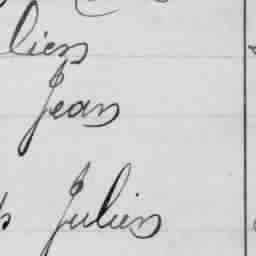 lien
Jean
Julien